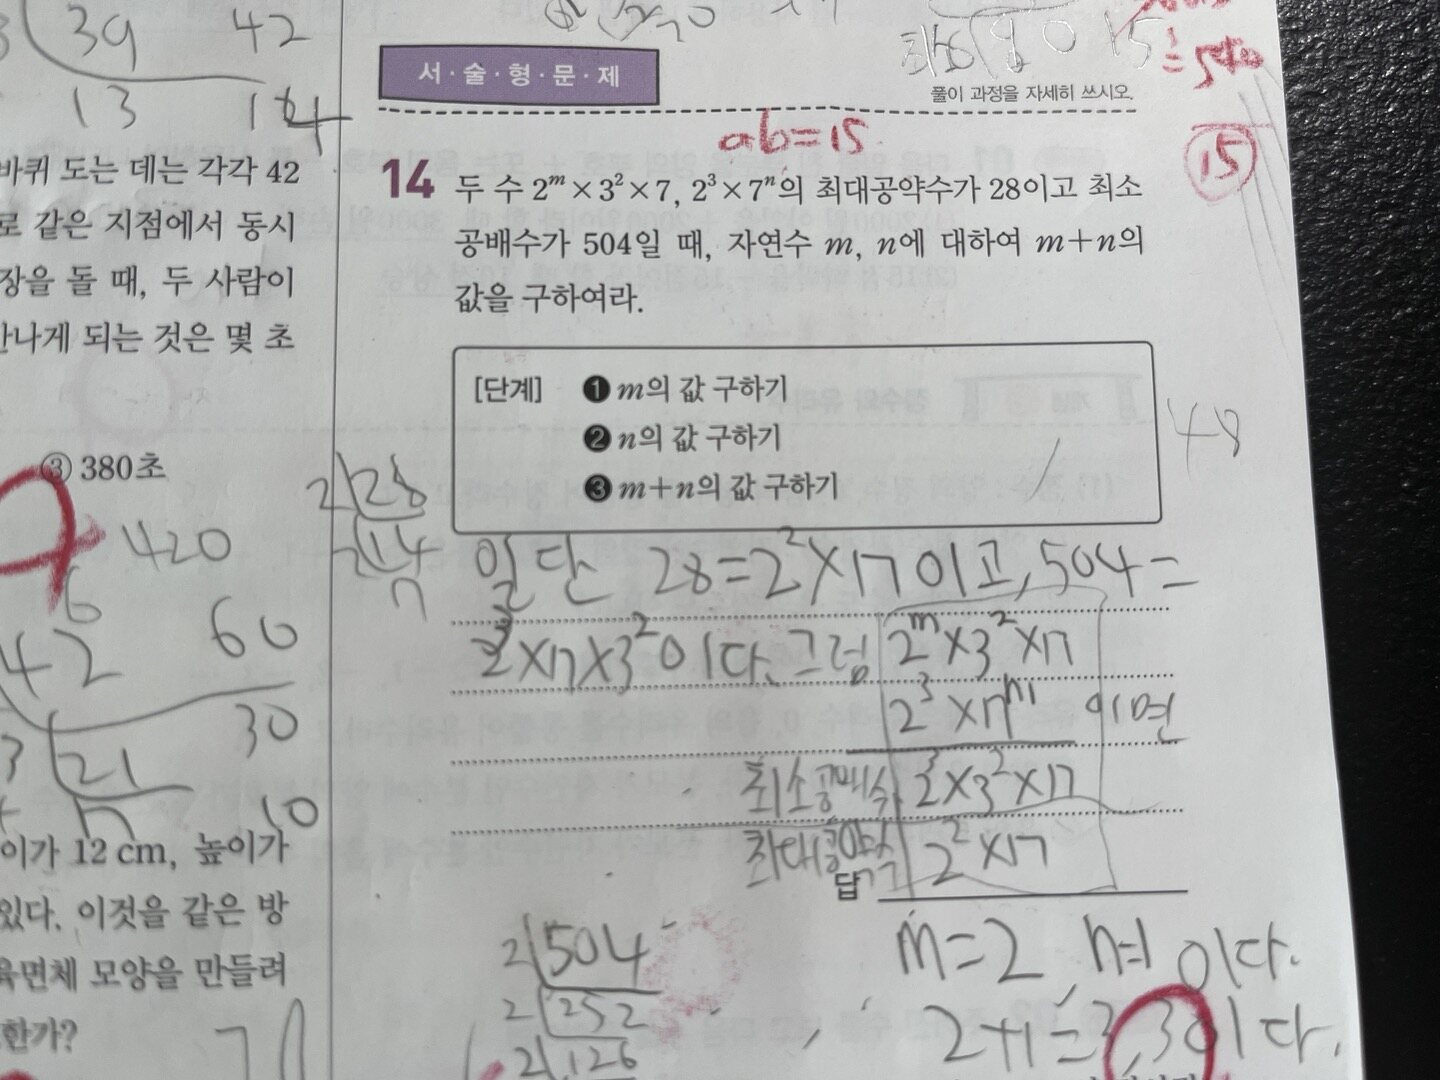 39 42
13 14
바퀴 도는 데는 각각 42
로 같은 지점에서 동시
장을 돌 때, 두 사람이
만나게 되는 것은 몇 초
③ 380초
420
6
42 60
30
3 21
7 10
이가 12 cm, 높이가
있다. 이것을 같은 방
육면체 모양을 만들려
한가?
서·술·형·문·제
풀이 과정을 자세히 쓰시오.
ab=15
15
14 두 수 2^m×3²×7, 2³×7ⁿ의 최대공약수가 28이고 최소
공배수가 504일 때, 자연수 m, n에 대하여 m+n의
값을 구하여라.
[단계] ❶ m의 값 구하기
❷ n의 값 구하기
❸ m+n의 값 구하기
48
2 28
2 14
7
일단 28=2²×7이고, 504=
2³×7×3²이다. 그럼 2^m×3²×7
2³×7ⁿ 이면
최소공배수 2³×3²×7
최대공약수 2²×7
답
m=2, n=1 이다.
2+1=3, 3이다.
2 504
2 252
2 126